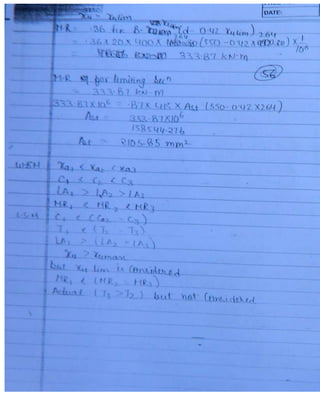 DATE:
xu = xulim
MR = .36 fck B. xulim (d - 0.42 xulim)
= .36 × 20 × 400 × (550 - 0.42 × ) × 1/10⁶
= 333.87 kN-m
56
M.R of for limiting Secⁿ
= 333.87 kN-m
333.87×10⁶ = .87 × 415 × Ast (550 - 0.42 × 264)
Ast = 333.87×10⁶
158544.276
Ast = 2105.85 mm²
WSM xa₁ < xa₂ < xa₃
C₁ < C₂ < C₃
LA₁ > LA₂ > LA₃
MR₁ < MR₂ < MR₃
L.S.M C₁ < (C₂ = C₃)
T₁ < (T₂ = T₃)
LA₁ > (LA₂ = LA₃)
xu > xumax
but xu lim is Considered
MR₁ < (MR₂ = MR₃)
Actual (T₃ > T₂) but not Considered